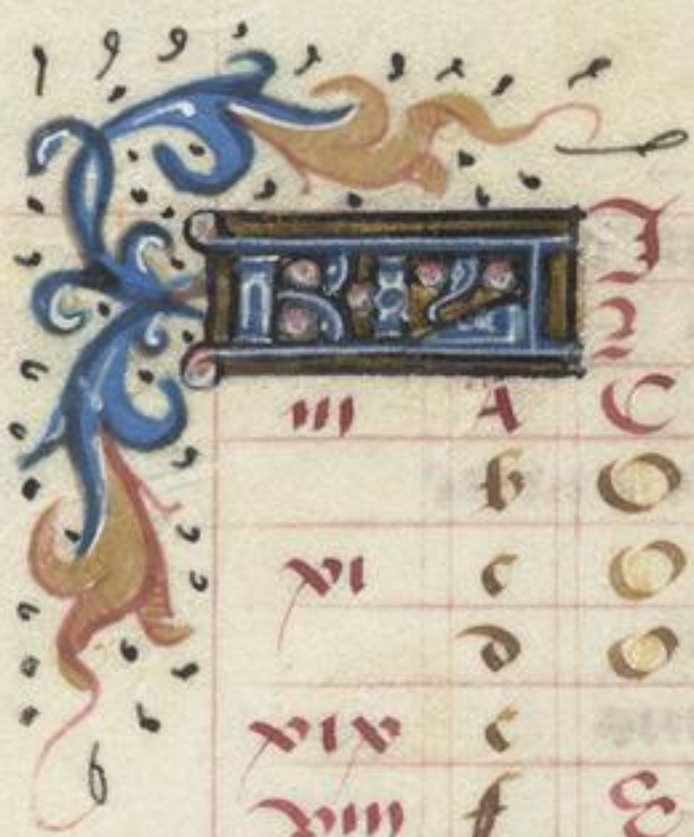 KL
iii A C
b O
xi c O
d O
xix e
viii f E